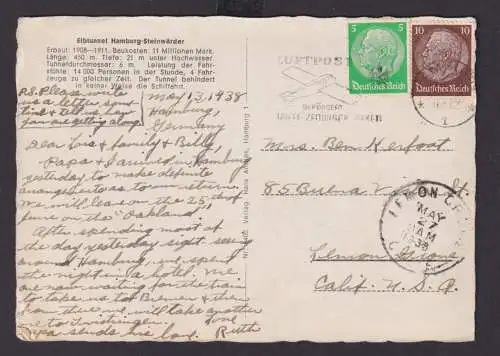 Elbtunnel Hamburg-Steinwärder
Erbaut: 1908-1911. Baukosten: 11 Millionen Mark.
Länge: 450 m. Tiefe: 21 m unter Hochwasser
Tunneldurchmesser: 6 m. Leistung der Fahr-
stühle: 14 000 Personen in der Stunde, 4 Fahr-
zeuge zu gleicher Zeit. Der Tunnel behindert
in keiner Weise die Schiffahrt.
P.S. Please write
us a letter some
time & tell us how
you are getting along
May 13, 1938
Hamburg,
Germany
Dear Lois & family & Billy,
Papa & I arrived in Hamburg
yesterday to make definite
arrangements as to our return.
We will leave on the 25, of
June on the "Oakland".
After spending most of
the day yesterday sight seeing
around Hamburg, we spent
the night in a hotel. We
are now waiting for the train
to take us to Bremen & then
from there we will take another
one to
Papa sends his love. Love
Ruth
Verlag Hans Hamburg 1
LUFTPOST
BEFÖRDERT
5
Deutsches Reich
10
Deutsches Reich
Mrs. Ben Kerfoot
85 Buena St.
Lemon Grove
Calif. U.S.A.
LEMON
MAY
27
AM
1938